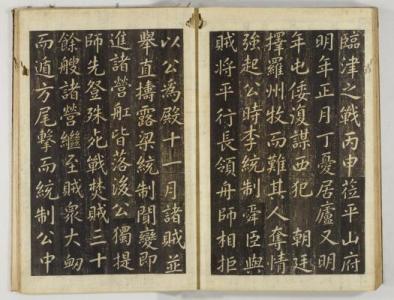 臨津之戰丙申莅平山府
明年正月丁憂居廬又明
年屯倭復謀西犯 朝廷
擇羅州牧而難其人奪情
強起公時李統制舜臣與
賊將平行長領舟師相拒
以公為殿十一月諸賊並
舉直擣露梁統制聞變即
進諸營舡皆落後公獨提
師先登殊死戰焚賊三十
餘艘諸營繼至賊衆大衂
而遁方尾擊而統制公中